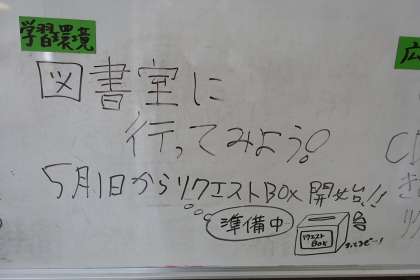 学習環境
広
図書室に
行ってみよう!
5月1日からリクエストBOX開始!!
準備中
リクエスト
BOX